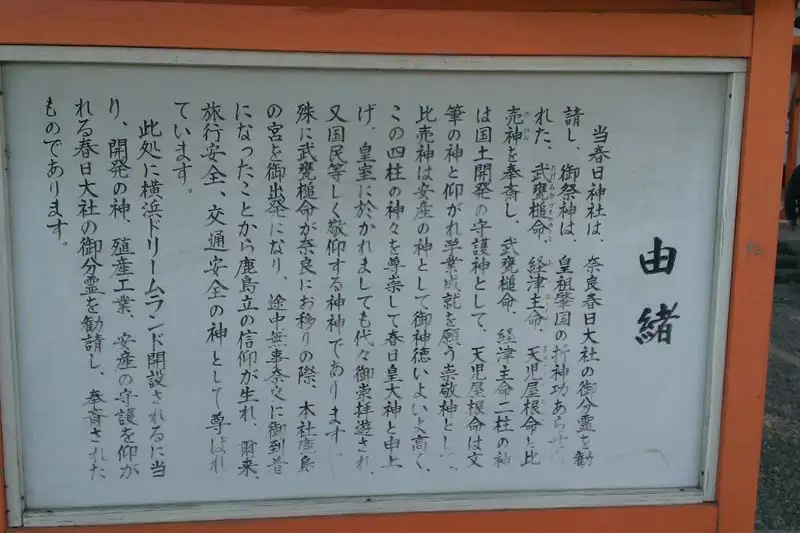 由緒
当春日神社は、奈良春日大社の御分霊を勧
請し、御祭神は、皇祖肇国の折神功あらせ
れた、武甕槌命、経津主命、天児屋根命と比
売神を奉斎し、武甕槌命、経津主命二柱の神
は国土開発の守護神として、天児屋根命は文
筆の神と仰がれ学業成就を願う崇敬神とし
比売神は安産の神として御神徳いよいよ高く、
この四柱の神々を尊崇して春日皇大神と申上
げ、皇室に於かれましても代々御崇拝遊され、
又国民等しく敬仰する神神であります。
殊に武甕槌命が奈良にお移りの際、本社鹿島
の宮を御出発になり、途中無事奈良に御到着
になったことから鹿島立の信仰が生れ、爾来、
旅行安全、交通安全の神として尊ばれ
ています。
此処に横浜ドリームランド開設されるに当
り、開発の神、殖産工業、安産の守護を仰が
れる春日大社の御分霊を勧請し、奉斎された
ものであります。